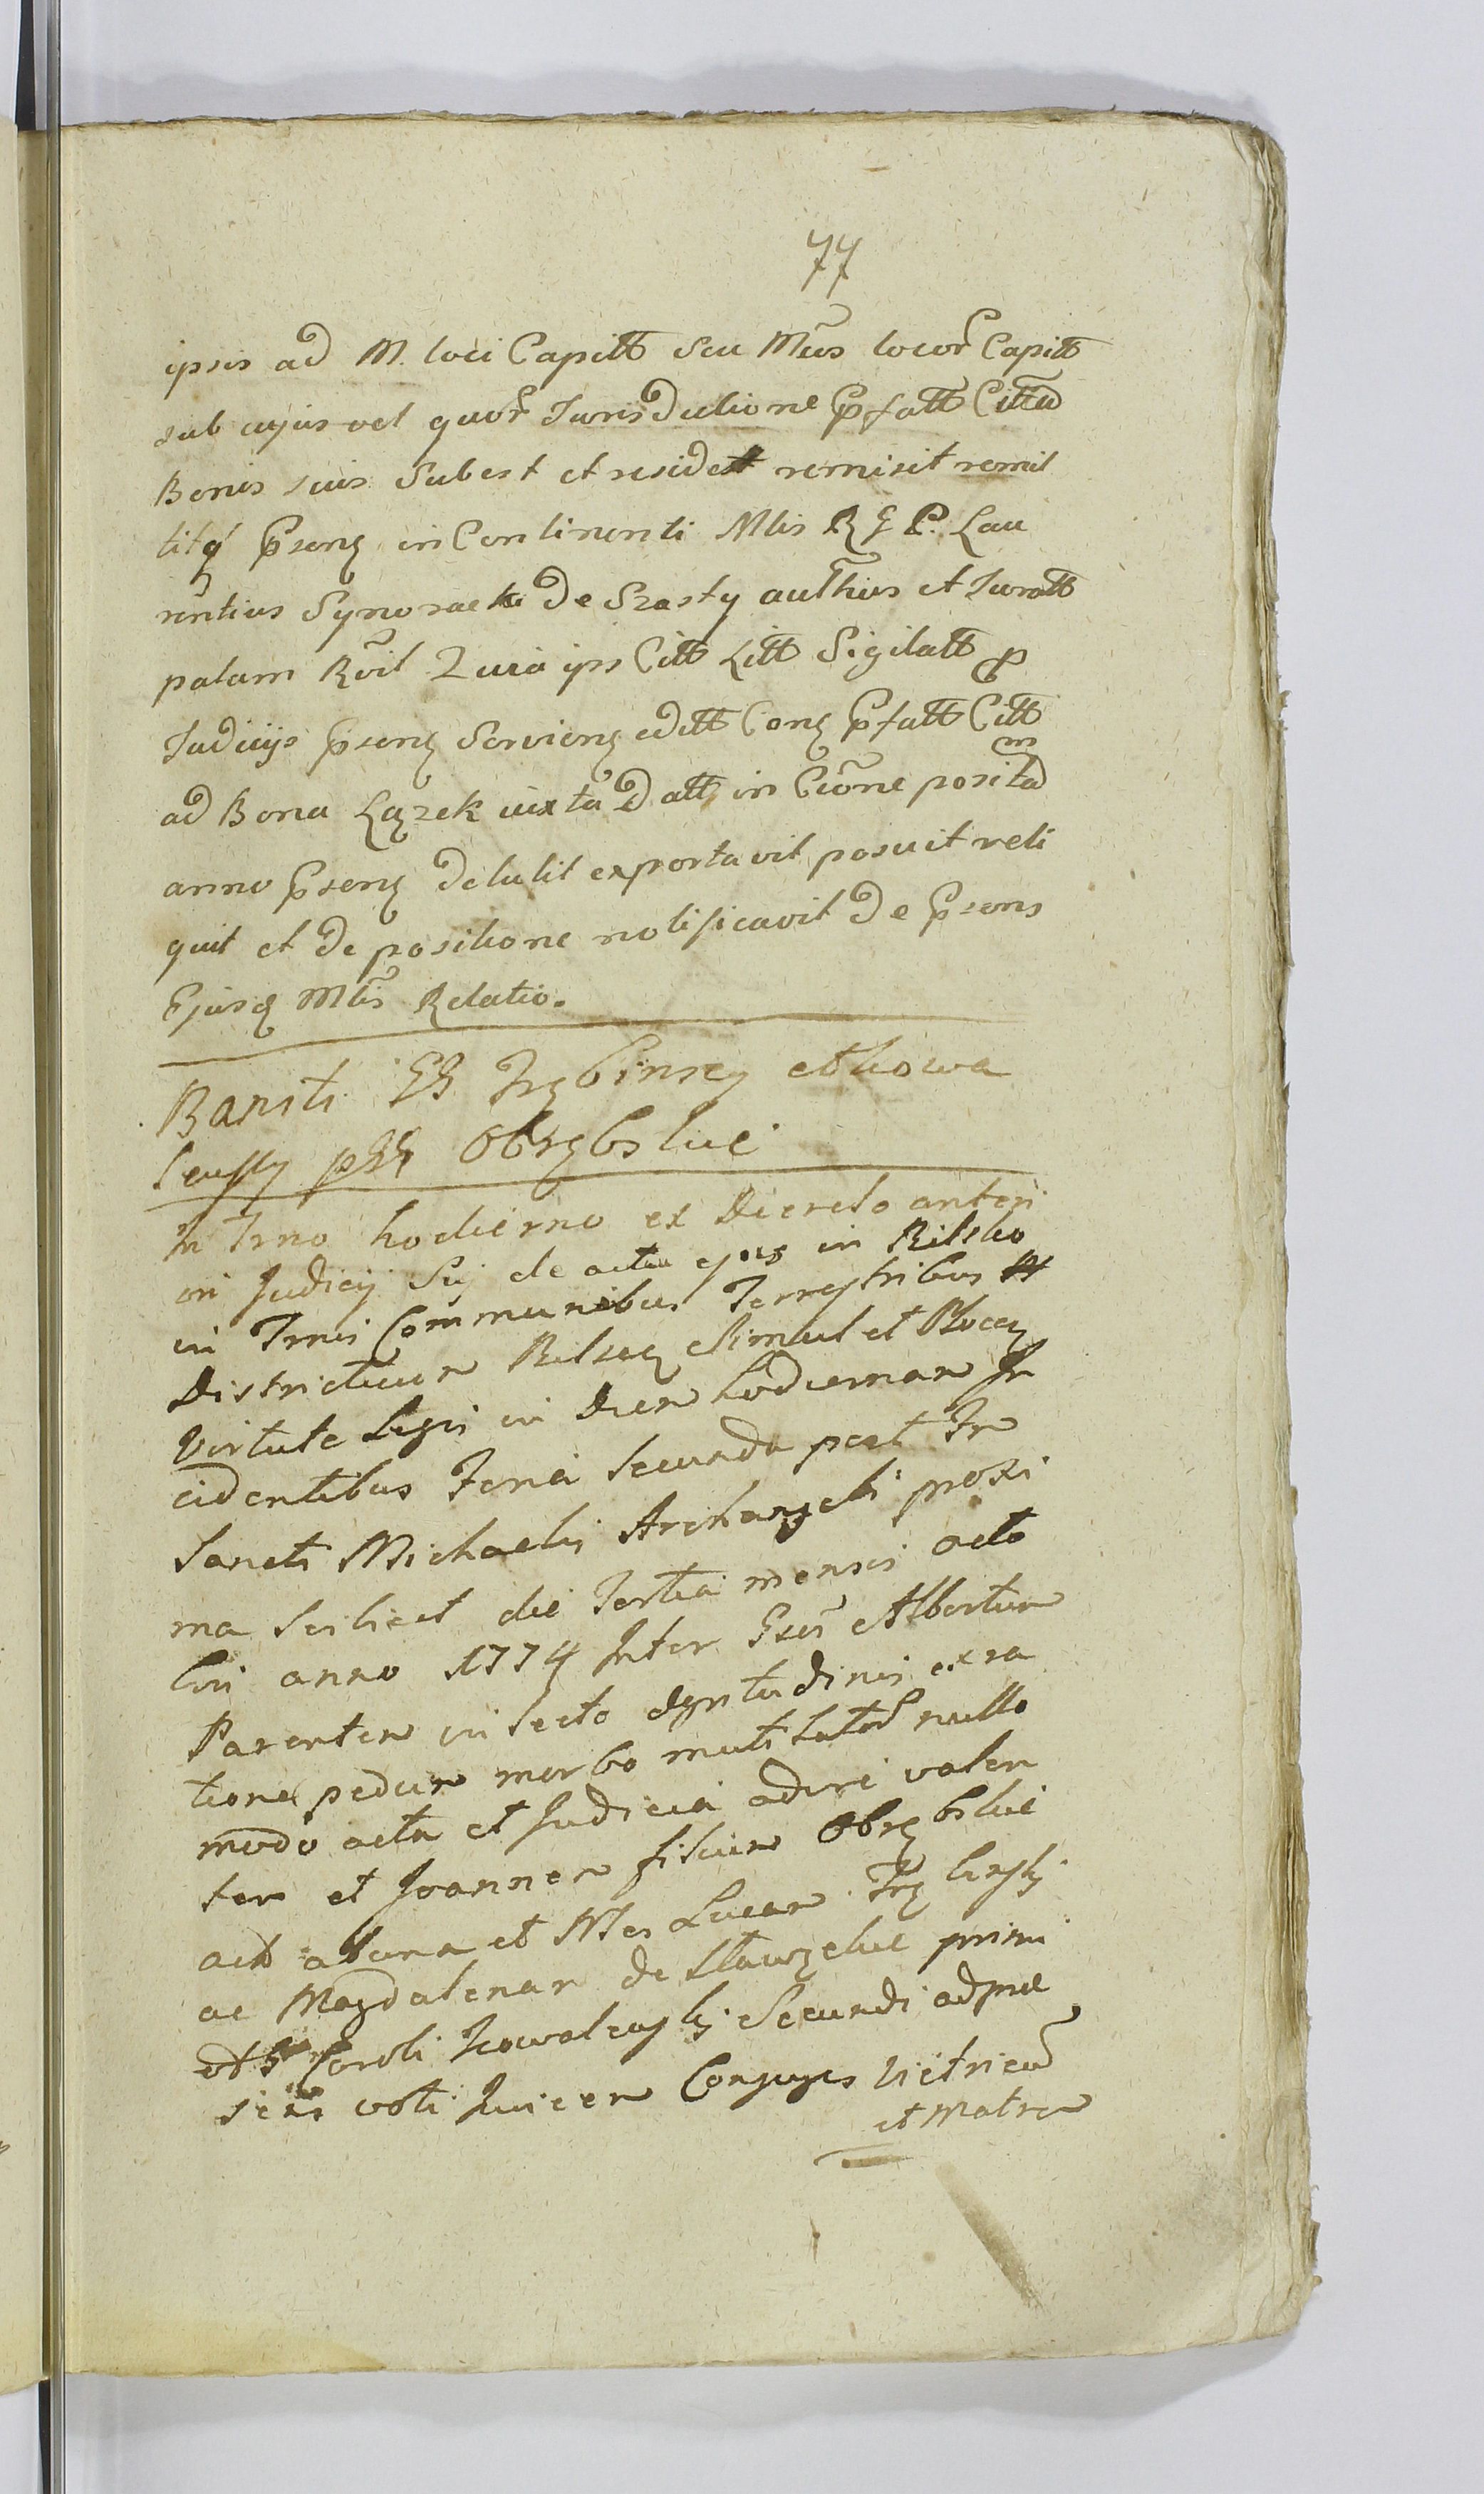 77
ipsis ad M. loci Capitt seu Mus locor Capitt
sub cujus vel quor Jurisdictione Pfatt Citta
Bonis suis Subest et resid remisit remit
titq Psenz in Continenti Mtis R G P. Lau
rentius Synorack de Szasty authius et Juratt
palam Roil Quia ips Citt Litt Sigilatt P
Judicijs Psenz Servienz editt Conz Pfatt Citt
ad Bona Łązek iuxta datt in Cione positam
anno Psenz detulit exportavit posuit reli
quit et de positione notificavit de Psens
Ejusq Mtis Relatio.
Baniti GG Trzbinscy et Kowa
lewscy pGG Obrębskie
In Trno hodierno ex Decreto anteri
ori Judicij Sui de actu ejus in Bilsko
in Trnis Communibus Terrestribus
Districtuum Bilscen Simul et Plocen
Virtute Legis in Diem hodiernam In
cidentibus Feria Secunda post Fm
Sancti Michaelis Archangeli proxi
ma scilicet die Tertia mensis Octo
bris anno 1774 Inter Gsos Albertum
Parentem in lecto egritudinis ex ra
tione pedum morbo mutilatod nullo
modo acta et Judicia adire valen
tem et Joannem filium Obrębskie
act ab una et Nles Lucam
ac Magdalenam de primi
et Gsi Caroli Kowalewski Secundi adprae
sens voti Invicem Conjuges Vitricum
et Matrem